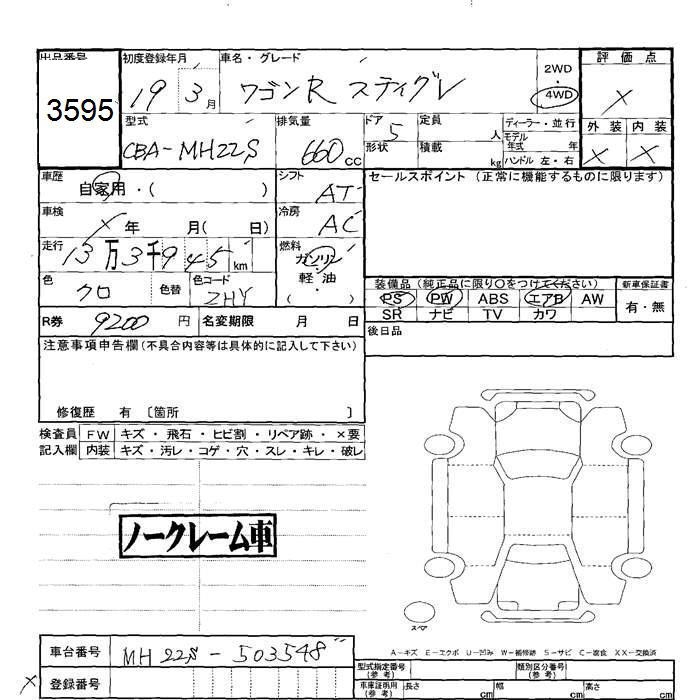 出品番号 初度登録年月 車名・グレード 2WD 評価点
3595 19 3月 ワゴンR スティグレ 4WD ×
型式 排気量 ドア 定員 ディーラー・並行 外装 内装
CBA-MH22S 660cc 5 人 モデル年式 年 × ×
形状 積載 kg ハンドル 左・右
車歴 シフト セールスポイント (正常に機能するものに限ります)
自家用・( ) AT
車検 冷房
×年 月( 日) AC
走行 燃料
13万3千945km ガソリン
軽・油
色 色替 色コード ( ) 装備品(純正品に限り○をつけてください) 新車保証書
クロ ZHY PS PW ABS エアB AW 有・無
R券 9200円 名変期限 月 日 SR ナビ TV カワ
注意事項申告欄(不具合内容等は具体的に記入して下さい) 後日品
修復歴 有 〔箇所 〕
検査員 FW キズ・飛石・ヒビ割・リペア跡・×要
記入欄 内装 キズ・汚レ・コゲ・穴・スレ・キレ・破レ
ノークレーム車
スペア
A-キズ E-エクボ U-凹み W-補修跡 S-サビ C-腐食 XX-交換済
車台番号 MH22S-503548 型式指定番号(参考) 類別区分番号(参考)
× 登録番号 車庫証明用(参考) 長さ cm 幅 cm 高さ cm